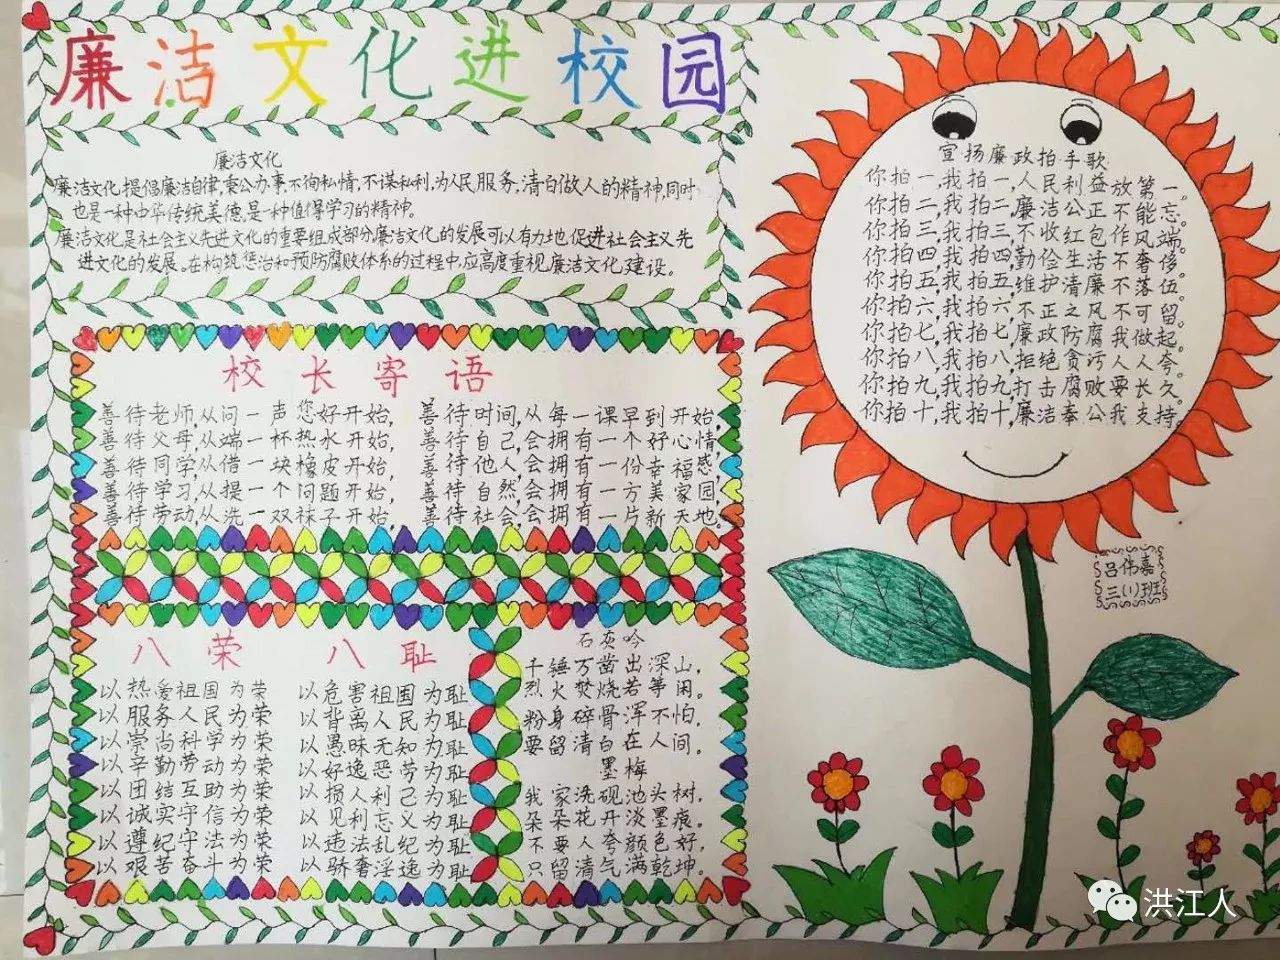 廉洁文化进校园
廉洁文化
廉洁文化,提倡廉洁自律,秉公办事,不徇私情,不谋私利,为人民服务,清白做人的精神,同时
也是一种中华传统美德,是一种值得学习的精神。
廉洁文化是社会主义先进文化的重要组成部分,廉洁文化的发展可以有力地促进社会主义先
进文化的发展。在构筑惩治和预防腐败体系的过程中,应高度重视廉洁文化建设。
校长寄语
善待老师,从问一声您好开始,
善待父母,从端一杯热水开始,
善待同学,从借一块橡皮开始,
善待学习,从提一个问题开始,
善待劳动,从洗一双袜子开始,
善待时间,从每一课早到开始,
善待自己,会拥有一个好心情,
善待他人,会拥有一份幸福感,
善待自然,会拥有一方美家园,
善待社会,会拥有一片新天地。
八荣
以热爱祖国为荣
以服务人民为荣
以崇尚科学为荣
以辛勤劳动为荣
以团结互助为荣
以诚实守信为荣
以遵纪守法为荣
以艰苦奋斗为荣
八耻
以危害祖国为耻
以背离人民为耻
以愚昧无知为耻
以好逸恶劳为耻
以损人利己为耻
以见利忘义为耻
以违法乱纪为耻
以骄奢淫逸为耻
石灰吟
千锤万凿出深山,
烈火焚烧若等闲。
粉身碎骨浑不怕,
要留清白在人间。
墨梅
我家洗砚池头树,
朵朵花开淡墨痕。
不要人夸颜色好,
只留清气满乾坤。
宣扬廉政拍手歌
你拍一,我拍一,人民利益放第一。
你拍二,我拍二,廉洁公正不能忘。
你拍三,我拍三,不收红包作风端。
你拍四,我拍四,勤俭生活不奢侈。
你拍五,我拍五,维护清廉不落伍。
你拍六,我拍六,不正之风不可留。
你拍七,我拍七,廉政防腐我做起。
你拍八,我拍八,拒绝贪污人人夸。
你拍九,我拍九,打击腐败要长久。
你拍十,我拍十,廉洁奉公我支持。
吕伟嘉
三(1)班
洪江人